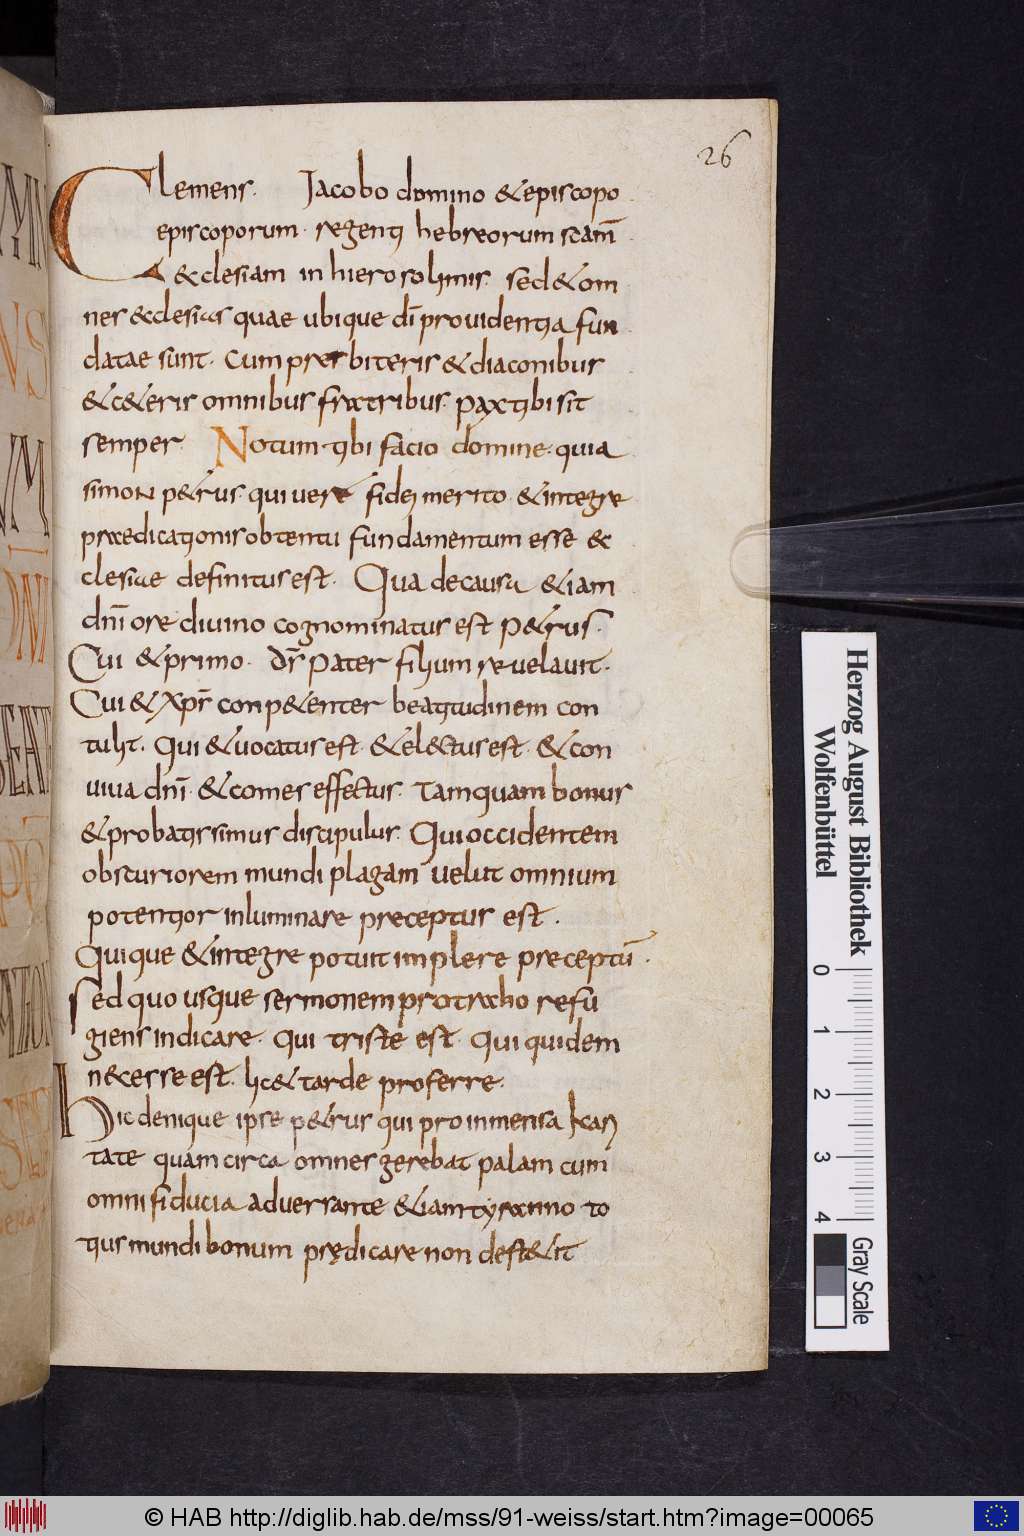 26
Clemens. Jacobo domino & episcopo
episcoporum. regenti hebreorum scam̄
& clesiam in hierosolimis. sed & om
nes &clesias quae ubique dī providentia fun
datae sunt. Cum presbiteris & diaconibus
& c&eris omnibus fratribus. pax tibi sit
semper. Notum tibi facio domine. quia
simon p&rus. qui vere fidei merito & integre
praedicationis obtentu fundamentum esse &
clesiae definitus est. Qua de causa &iam
dnī ore divino cognominatus est p&rus.
Cui & primo. ds̄ pater filium revelavit.
Cui & xps̄ conp&enter beatitudinem con
tulit. Qui & uocatus est. & el&ctus est. & con
uiua dnī. & comes effectus. Tamquam bonus
& probatissimus discipulus. Qui occidentem
obscuriorem mundi plagam velut omnium
potentior inluminare preceptus est.
Qui que & integre potuit implere preceptū.
Sed quo usque sermonem protraho refu
giens indicare. Qui triste est. Qui quidem
necesse est. lic& tarde proferre.
Hic denique ipse p&rus qui pro inmensa kari
tate quam circa omnes gerebat palam cum
omni fiducia adversante &iam tyranno to
tius mundi bonum prędicare non dest&it
Herzog August Bibliothek
Wolfenbüttel
0 1 2 3 4
Gray Scale
© HAB http://diglib.hab.de/mss/91-weiss/start.htm?image=00065